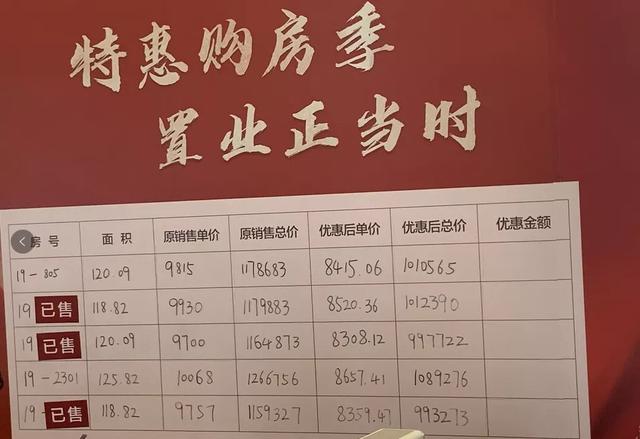 特惠购房季
置业正当时
房号 面积 原销售单价 原销售总价 优惠后单价 优惠后总价 优惠金额
19-805 120.09 9815 1178683 8415.06 1010565
19 已售 118.82 9930 1179883 8520.36 1012390
19 已售 120.09 9700 1164873 8308.12 997722
19-2301 125.82 10068 1266756 8657.41 1089276
19- 已售 118.82 9757 1159327 8359.47 993273